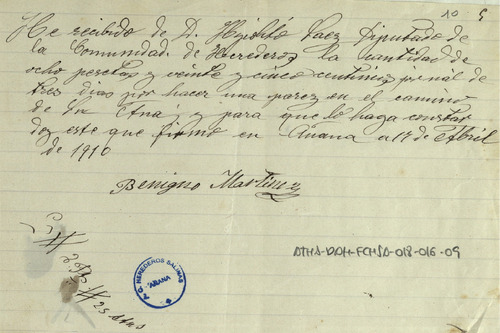 10 5
He recibido de D. Hipolito Saez Diputado de
la Comunidad de Herederos la cantidad de
ocho pesetas y veinte y cinco centimos jornal de
tres dias por hacer una pared en el camino
de Sta Ana; y para que lo haga constar
doy este que firmo en Añana a 17 de Abril
de 1910
Benigno Martinez
ATHA-DAH-FCHSA-018-016-09
HEREDEROS SALINAS
AÑANA
# 8 Ps
# 25 ctms